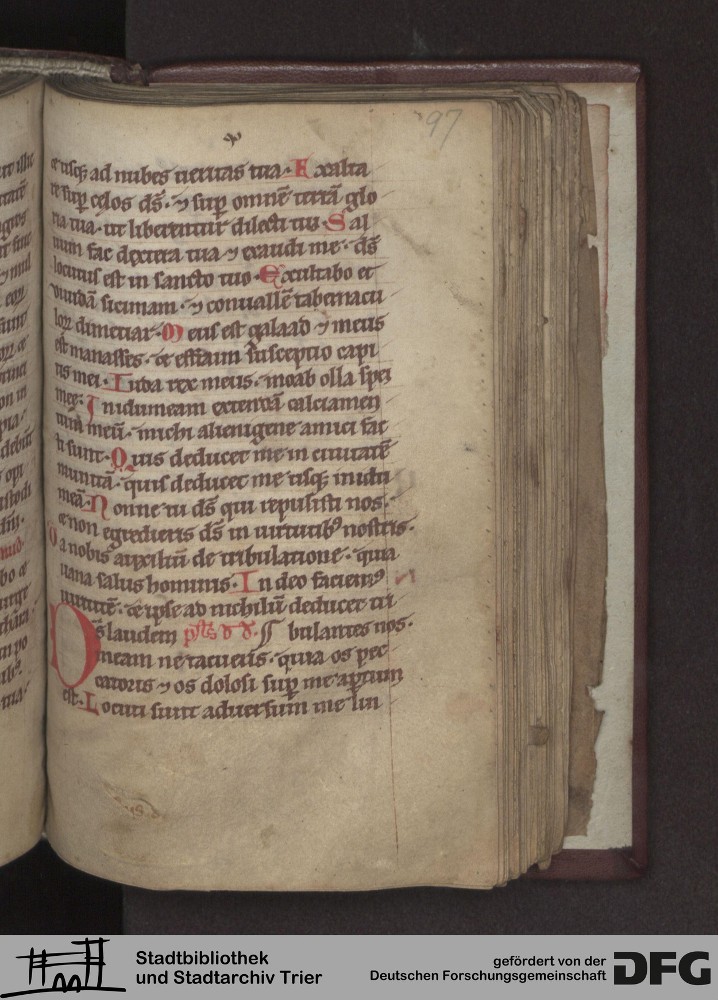 97
et usq; ad nubes ueritas tua. Exalta
re sup celos ds. ⁊ sup omnē terrā glo
ria tua. ut liberentur dilecti tui. Sal
uum fac dextera tua ⁊ exaudi me. ds
locutus est in sancto suo. Exultabo et
diuidā sicimam. ⁊ conuallē tabernacu
loꝝ dimetiar. Meus est galaad ⁊ meus
est manasses. et effraim susceptio capi
tis mei. Iuda rex meus. moab olla spei
mee. In idumeam extendā calciamen
tum meū. michi alienigene amici fac
ti sunt. Quis deducet me in ciuitatē
munitā. quis deducet me usq; in idu
meā. Nonne tu ds qui repulisti nos.
et non egredieris ds in uirtutibꝰ nostris.
Da nobis auxiliū de tribulatione. quia
uana salus hominis. In deo faciemꝰ
uirtutē. et ipse ad nichilū deducet tri
Ds laudem bulantes nos.
meam ne tacueris. quia os pec
catoris ⁊ os dolosi sup me apertum
est. Locuti sunt aduersum me lin
Stadtbibliothek
und Stadtarchiv Trier
gefördert von der
Deutschen Forschungsgemeinschaft
DFG